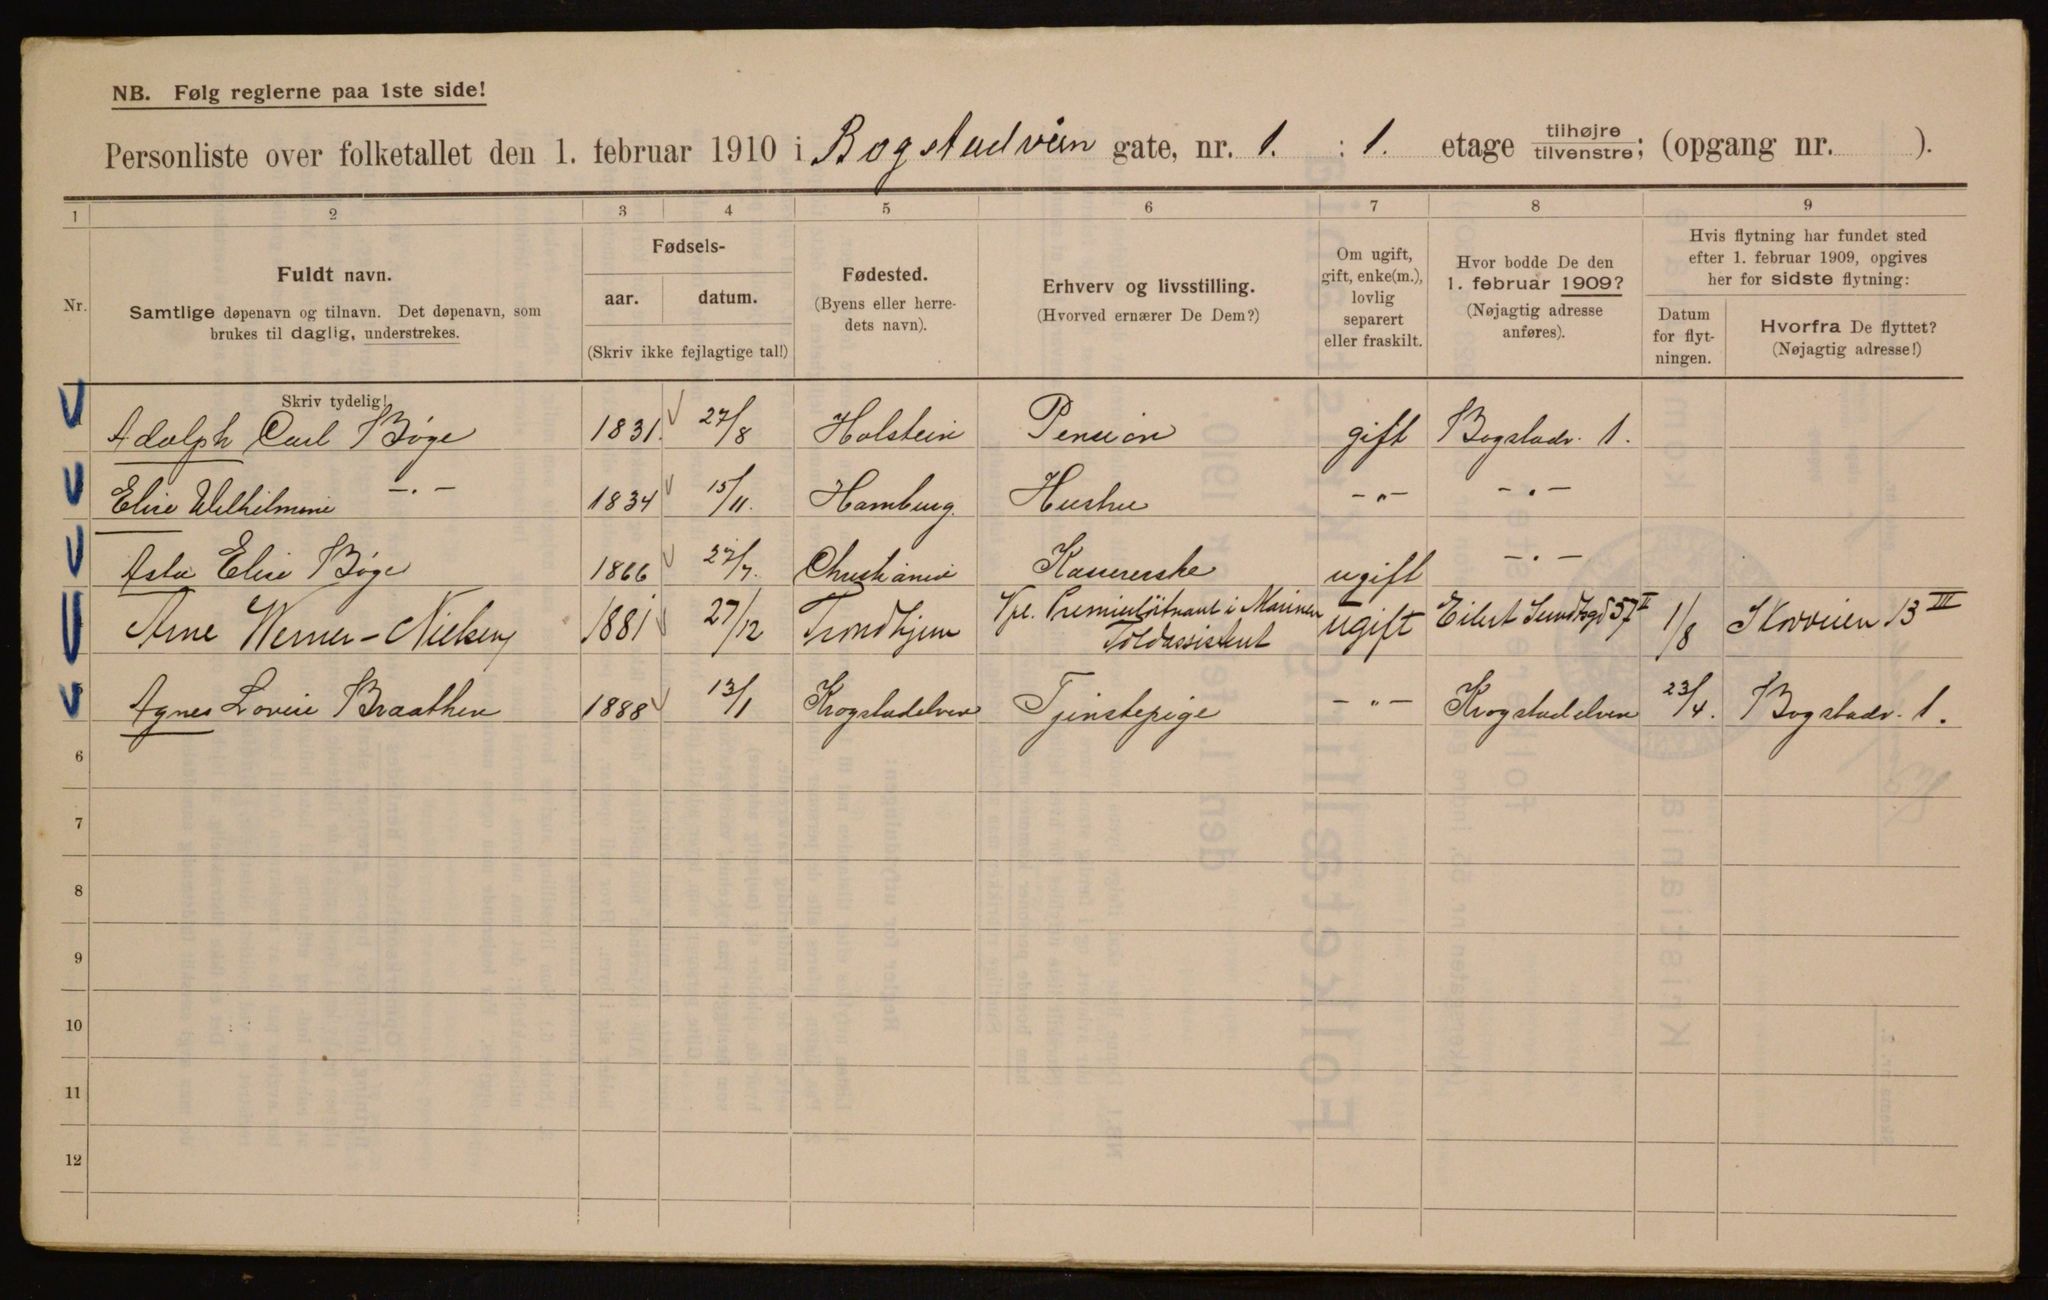 NB. Følg reglerne paa 1ste side!
Personliste over folketallet den 1. februar 1910 i Bogstadveien gate, nr. 1. : 1. etage tilhøjre/tilvenstre; (opgang nr. ).
1 2 3 4 5 6 7 8 9
Nr.
Fuldt navn.
Samtlige døpenavn og tilnavn. Det døpenavn, som
brukes til daglig, understrekes.
Fødsels-
aar. datum.
(Skriv ikke fejlagtige tal!)
Fødested.
(Byens eller herre-
dets navn).
Erhverv og livsstilling.
(Hvorved ernærer De Dem?)
Om ugift,
gift, enke(m.),
lovlig
separert
eller fraskilt.
Hvor bodde De den
1. februar 1909?
(Nøjagtig adresse
anføres).
Hvis flytning har fundet sted
efter 1. februar 1909, opgives
her for sidste flytning:
Datum
for flyt-
ningen.
Hvorfra De flyttet?
(Nøjagtig adresse!)
Skriv tydelig!
Adolph Carl Bøge 1831. 27/8 Holstein Pension gift Bogstadv. 1.
Elise Wilhelmine -"- 1834 15/11. Hamburg. Hustru -"- -"-
Asta Elise Bøge 1866 27/7. Christiania Kassererske ugift -"-
Arne Werner-Nielsen 1881 27/12 Trondhjem Vpl. Premierløitnant i Marinen ugift Eilert Sundtsgd 57 II 1/8 Skovveien 13 III
Toldassistent
Agnes Lovise Braathen 1888 13/1 Krogstadelven Tjenstepige -"- Krogstadelven 23/4. Bogstadv. 1.
6
7
8
9
10
11
12